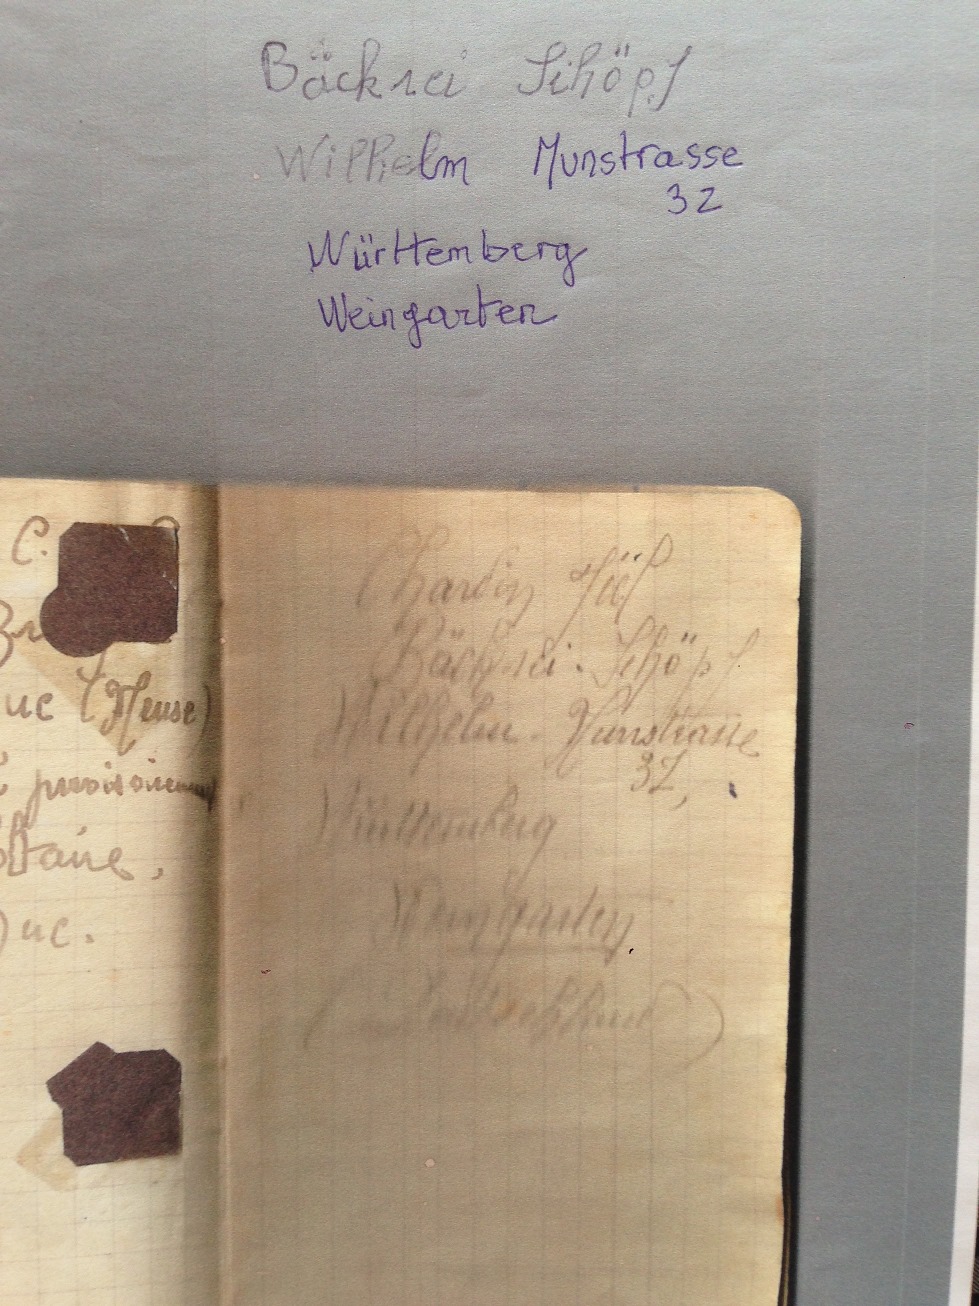 Bäckrei Schöpf
Wilhelm Munstrasse
32
Württemberg
Weingarten
C.
uc (Meuse)
provisoirement
uc.
Bäckrei. Schöpf
Wilhelm. Munstrasse
32,
Württemberg
Weingarten,